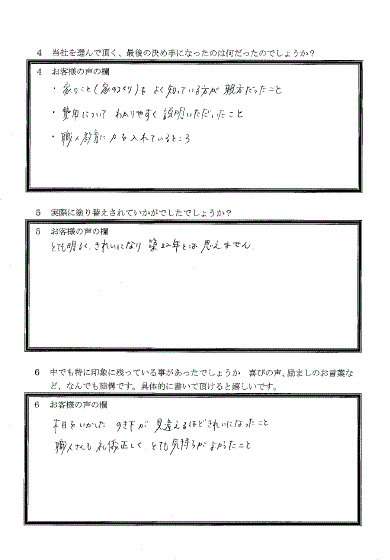 4 当社を選んで頂く、最後の決め手になったのは何だったのでしょうか？
4 お客様の声の欄
・家のこと(家のつくり)をよく知っている方が親方だったこと
・費用についてわかりやすく説明いただいたこと
・職人教育に力を入れているところ
5 実際に塗り替えされていかがでしたでしょうか？
5 お客様の声の欄
とても明るく、きれいになり築22年とは思えません
6 中でも特に印象に残っている事があったでしょうか 喜びの声、励ましのお言葉な
ど、なんでも結構です。具体的に書いて頂けると嬉しいです。
6 お客様の声の欄
木目をいかしたのき下が見違えるほどきれいになったこと
職人さんも礼儀正しくとても気持ちがよかったこと